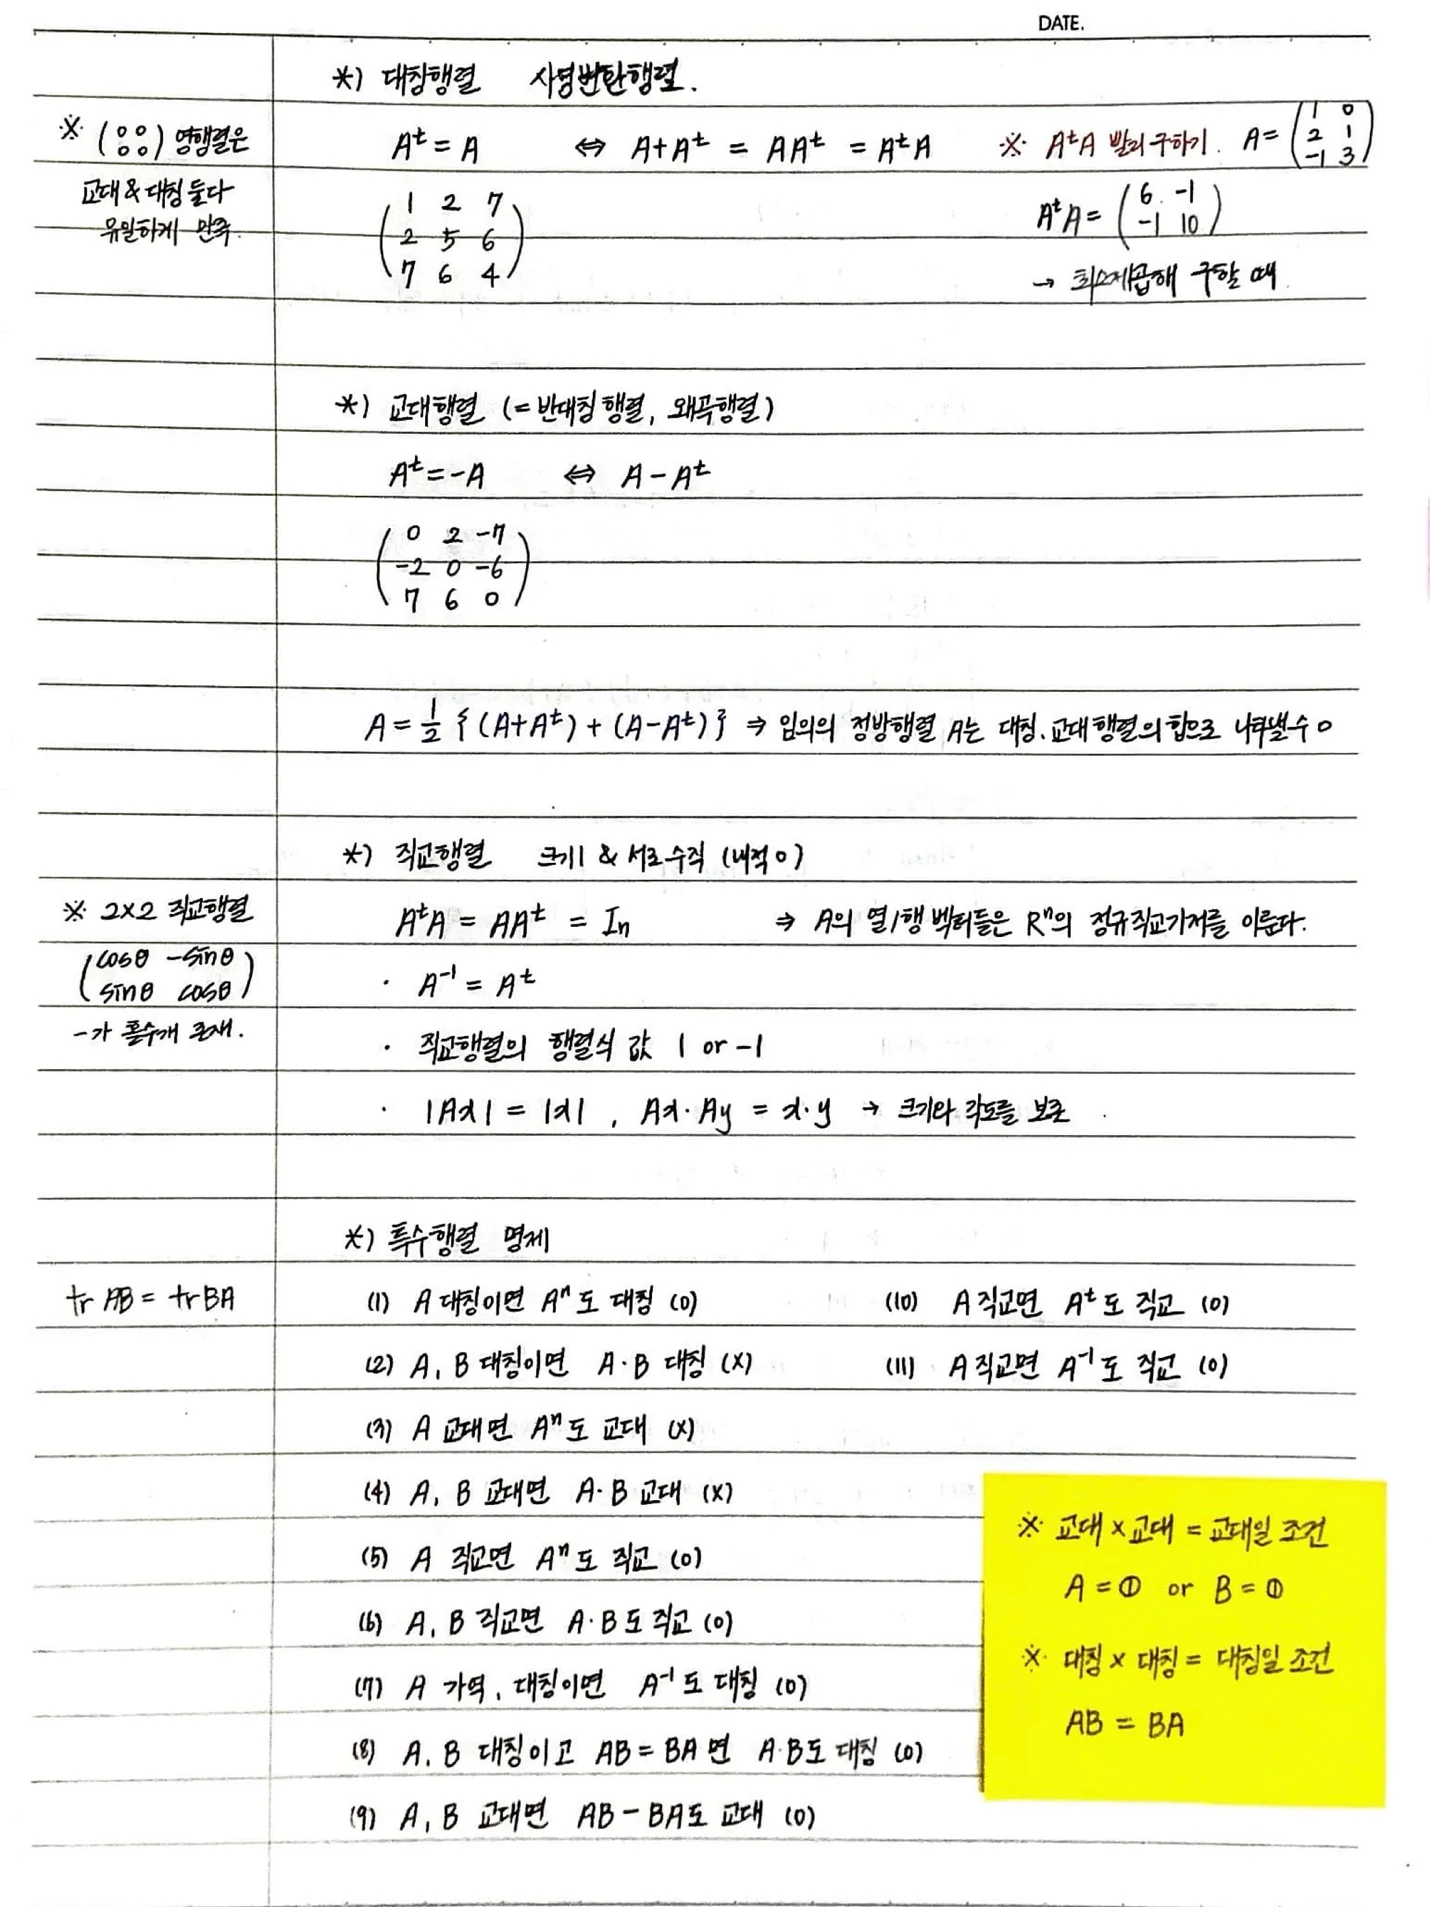 DATE.
*) 대칭행렬 사영변환행렬.
※ (0 0 / 0 0) 영행렬은
교대&대칭 둘다
유일하게 만족.
Aᵗ = A ⇔ A+Aᵗ = AAᵗ = AᵗA
( 1 2 7
2 5 6
7 6 4 )
※ AᵗA 빨리구하기. A = ( 1 0
2 1
-1 3 )
AᵗA = ( 6 -1
-1 10 )
→ 최소제곱해 구할 때
*) 교대행렬 (=반대칭 행렬, 왜곡행렬)
Aᵗ = -A ⇔ A - Aᵗ
( 0 2 -7
-2 0 -6
7 6 0 )
A = 1/2 { (A+Aᵗ) + (A-Aᵗ) } ⇒ 임의의 정방행렬 A는 대칭.교대행렬의 합으로 나타낼수 0
*) 직교행렬 크기1 & 서로수직 (내적0)
※ 2×2 직교행렬
( cosθ -sinθ
sinθ cosθ )
-가 홀수개 존재.
AᵗA = AAᵗ = In ⇒ A의 열/행 벡터들은 Rⁿ의 정규직교기저를 이룬다.
· A⁻¹ = Aᵗ
· 직교행렬의 행렬식 값 1 or -1
· |Ax| = |x| , Ax·Ay = x·y → 크기와 각도를 보존
*) 특수행렬 명제
tr AB = tr BA
(1) A 대칭이면 Aⁿ도 대칭 (0)
(2) A, B 대칭이면 A·B 대칭 (X)
(3) A 교대면 Aⁿ도 교대 (X)
(4) A, B 교대면 A·B 교대 (X)
(5) A 직교면 Aⁿ도 직교 (0)
(6) A, B 직교면 A·B도 직교 (0)
(7) A 가역, 대칭이면 A⁻¹도 대칭 (0)
(8) A, B 대칭이고 AB = BA 면 A·B도 대칭 (0)
(9) A, B 교대면 AB - BA도 교대 (0)
(10) A 직교면 Aᵗ도 직교 (0)
(11) A 직교면 A⁻¹도 직교 (0)
※ 교대 × 교대 = 교대일 조건
A = O or B = O
※ 대칭 × 대칭 = 대칭일 조건
AB = BA